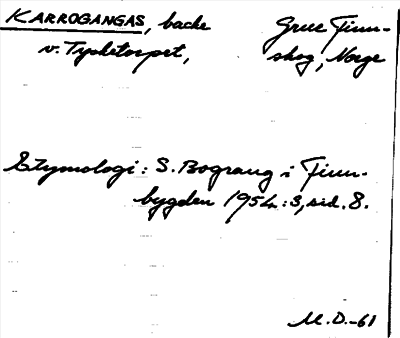 KARROGANGAS, backe
v. Tysketorpet,
Grue Finn-
skog, Norge
Etymologi: S. Bograng i Finn-
bygden 1954:3, sid. 8.
M.D.-61